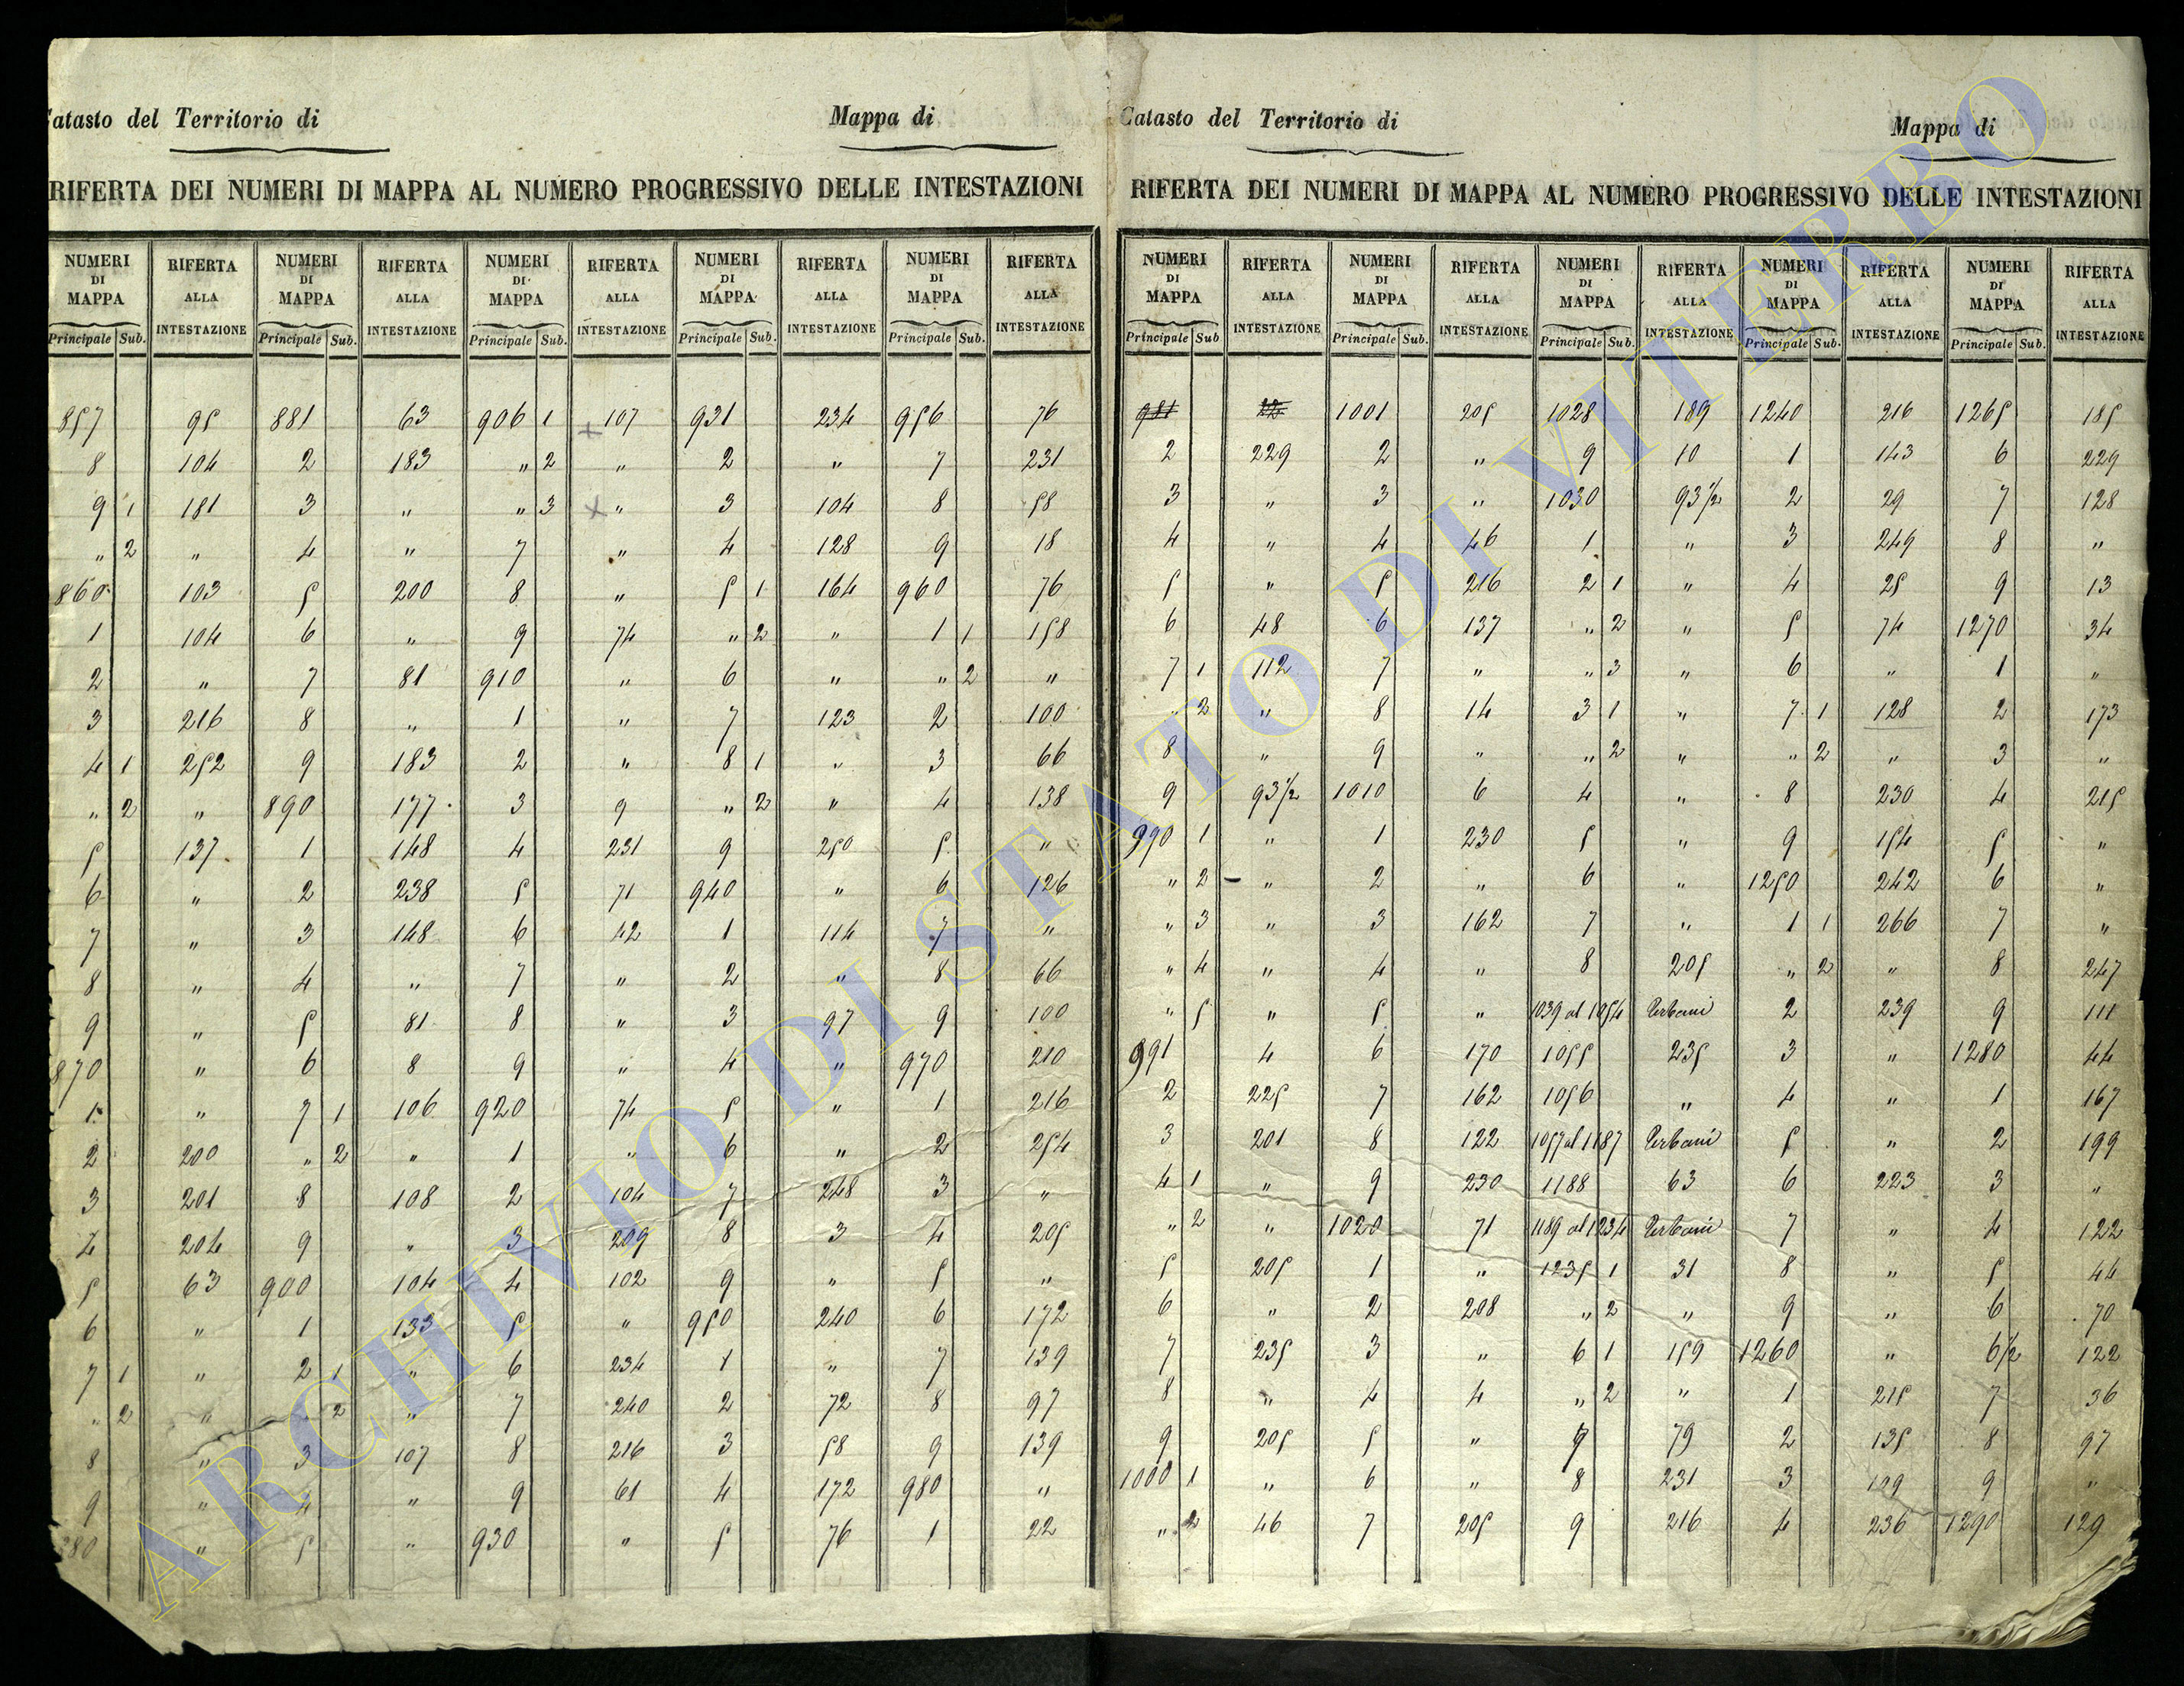 Catasto del Territorio di Mappa di
RIFERTA DEI NUMERI DI MAPPA AL NUMERO PROGRESSIVO DELLE INTESTAZIONI
NUMERI DI MAPPA RIFERTA ALLA INTESTAZIONE NUMERI DI MAPPA RIFERTA ALLA INTESTAZIONE NUMERI DI MAPPA RIFERTA ALLA INTESTAZIONE NUMERI DI MAPPA RIFERTA ALLA INTESTAZIONE NUMERI DI MAPPA RIFERTA ALLA INTESTAZIONE
Principale Sub. Principale Sub. Principale Sub. Principale Sub. Principale Sub.
857 95 881 63 906 1 x 107 931 234 956 76
8 104 2 183 " 2 " 2 " 7 231
9 1 181 3 " " 3 x " 3 104 8 58
" 2 " 4 " 7 " 4 128 9 18
860 103 5 200 8 " 5 1 164 960 76
1 104 6 " 9 74 " 2 " 1 1 158
2 " 7 81 910 " 6 " " 2 "
3 216 8 " 1 " 7 123 2 100
4 1 252 9 183 2 " 8 1 " 3 66
" 2 " 890 177 3 9 " 2 " 4 138
5 137 1 148 4 231 9 250 5 "
6 " 2 238 5 71 940 " 6 126
7 " 3 148 6 42 1 114 7 "
8 " 4 " 7 " 2 " 8 66
9 " 5 81 8 " 3 97 9 100
870 " 6 8 9 " 4 " 970 210
1 " 7 1 106 920 74 5 " 1 216
2 200 " 2 " 1 " 6 " 2 254
3 201 8 108 2 104 7 248 3 "
4 204 9 " 3 209 8 3 4 205
5 63 900 104 4 102 9 " 5 "
6 " 1 133 5 " 950 240 6 172
7 1 " 2 1 " 6 234 1 " 7 139
" 2 " " 2 " 7 240 2 72 8 97
8 " 3 107 8 216 3 58 9 139
9 " 4 " 9 61 4 172 980 "
880 " 5 " 930 " 5 76 1 22
Catasto del Territorio di Mappa di
RIFERTA DEI NUMERI DI MAPPA AL NUMERO PROGRESSIVO DELLE INTESTAZIONI
NUMERI DI MAPPA RIFERTA ALLA INTESTAZIONE NUMERI DI MAPPA RIFERTA ALLA INTESTAZIONE NUMERI DI MAPPA RIFERTA ALLA INTESTAZIONE NUMERI DI MAPPA RIFERTA ALLA INTESTAZIONE NUMERI DI MAPPA RIFERTA ALLA INTESTAZIONE
Principale Sub Principale Sub. Principale Sub. Principale Sub. Principale Sub.
981 22 1001 205 1028 189 1240 216 1265 185
2 229 2 " 9 10 1 143 6 229
3 " 3 " 1030 93½ 2 29 7 128
4 " 4 46 1 " 3 249 8 "
5 " 5 216 2 1 " 4 25 9 13
6 48 6 137 " 2 " 5 74 1270 34
7 1 112 7 " " 3 " 6 " 1 "
" 2 " 8 14 3 1 " 7 1 128 2 173
8 " 9 " " 2 " " 2 " 3 "
9 93½ 1010 6 4 " 8 230 4 215
990 1 " 1 230 5 " 9 154 5 "
" 2 " 2 " 6 " 1250 242 6 "
" 3 " 3 162 7 " 1 1 266 7 "
" 4 " 4 " 8 205 " 2 " 8 247
" 5 " 5 " 1039 al 1054 Urbani 2 239 9 111
991 4 6 170 1055 235 3 " 1280 44
2 225 7 162 1056 " 4 " 1 167
3 201 8 122 1057 al 1187 Urbani 5 " 2 199
4 1 " 9 230 1188 63 6 223 3 "
" 2 " 1020 71 1189 al 1234 Urbani 7 " 4 122
5 205 1 " 1235 1 31 8 " 5 44
6 " 2 208 " 2 " 9 " 6 70
7 235 3 " 6 1 159 1260 " 6½ 122
8 " 4 4 " 2 " 1 215 7 36
9 205 5 " 7 79 2 135 8 97
1000 1 " 6 " 8 231 3 199 9 "
" 2 46 7 205 9 216 4 236 1290 129
ARCHIVIO DI STATO DI VITERBO